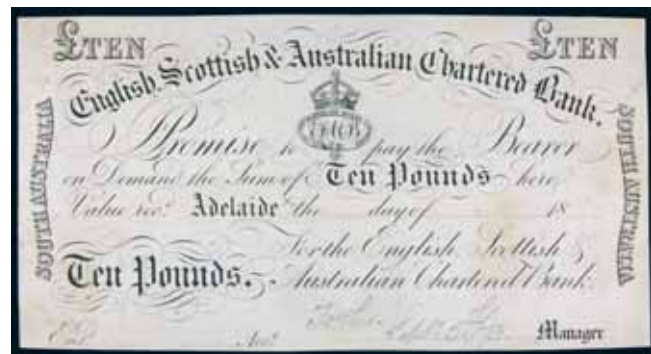 £TEN £TEN
English, Scottish & Australian Chartered Bank.
SOUTH AUSTRALIA
I Promise to pay the Bearer
on Demand the Sum of Ten Pounds here
Value recd. Adelaide the day of 18
For the English, Scottish &
Ten Pounds. Australian Chartered Bank.
SOUTH AUSTRALIA
Entd. Acct. Manager